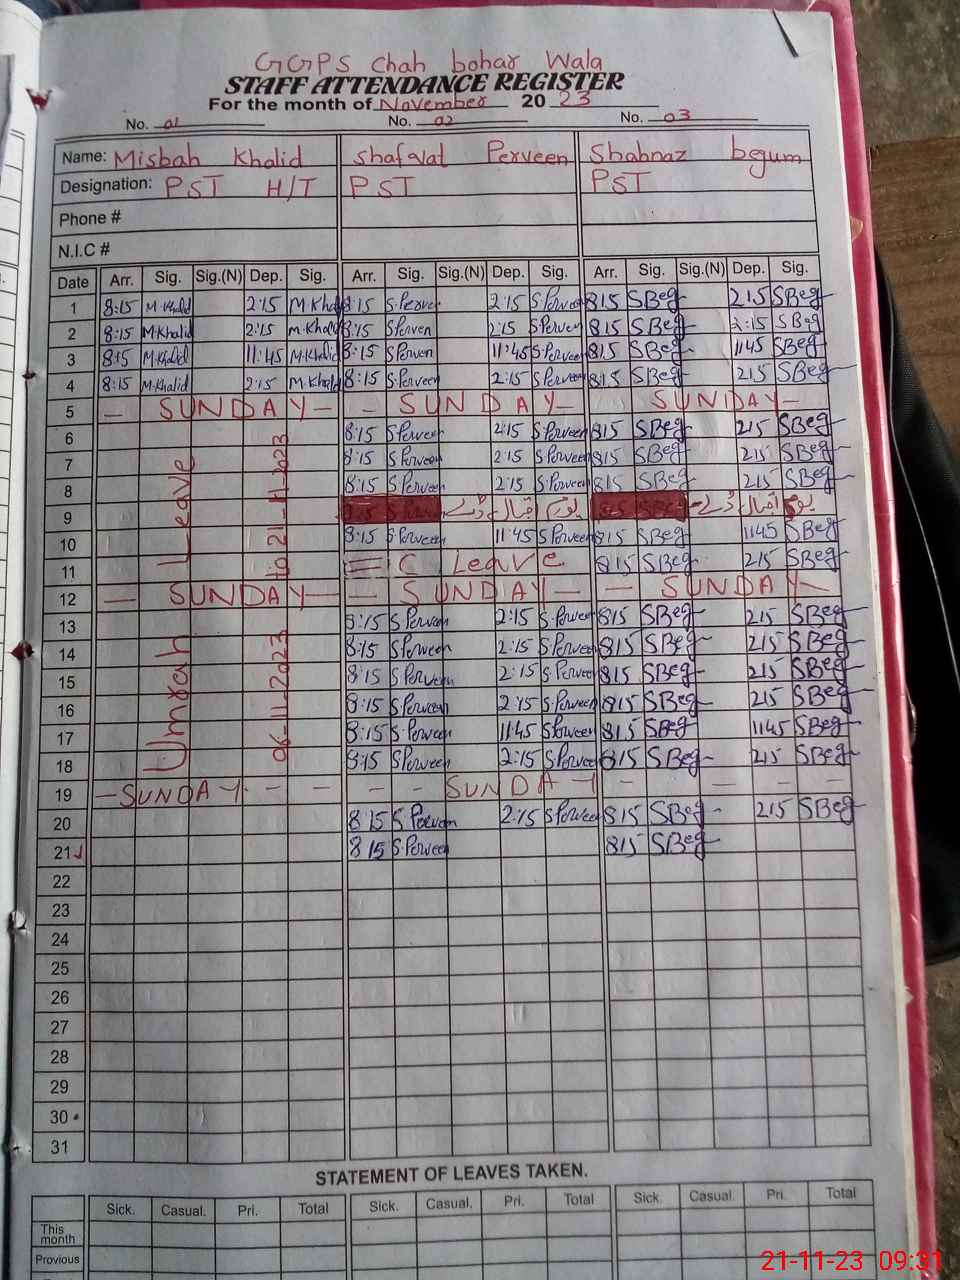 GGPS chah bohar Wala
STAFF ATTENDANCE REGISTER
For the month of November 20 23
No. 01 No. 02 No. 03
Name: Misbah Khalid Shafqat Perveen Shabnaz begum
Designation: PST H/T PST PST
Phone #
N.I.C #
Date Arr. Sig. Sig.(N) Dep. Sig. Arr. Sig. Sig.(N) Dep. Sig. Arr. Sig. Sig.(N) Dep. Sig.
1 8:15 M.Khalid 2:15 M.Khalid 8:15 S.Perveen 2:15 S.Perveen 815 SBeg 215 SBeg
2 8:15 M.Khalid 2:15 M.Khalid 8:15 S.Perveen 2:15 S.Perveen 815 SBeg 2:15 SBeg
3 8:15 M.Khalid 11:45 M.Khalid 8:15 S.Perveen 11:45 S.Perveen 815 SBeg 1145 SBeg
4 8:15 M.Khalid 2:15 M.Khalid 8:15 S.Perveen 2:15 S.Perveen 815 SBeg 215 SBeg
5 — SUNDAY — – SUNDAY — SUNDAY –
6 8:15 S.Perveen 2:15 S.Perveen 815 SBeg 215 SBeg
7 8:15 S.Perveen 2:15 S.Perveen 815 SBeg 215 SBeg
8 8:15 S.Perveen 2:15 S.Perveen 815 SBeg 215 SBeg
9 یوم اقبال ڈے یوم اقبال ڈے
10 8:15 S.Perveen 11:45 S.Perveen 815 SBeg 1145 SBeg
11 C Leave 815 SBeg 215 SBeg
12 — SUNDAY — — SUNDAY — — SUNDAY —
13 8:15 S.Perveen 2:15 S.Perveen 815 SBeg 215 SBeg
14 8:15 S.Perveen 2:15 S.Perveen 815 SBeg 215 SBeg
15 8:15 S.Perveen 2:15 S.Perveen 815 SBeg 215 SBeg
16 8:15 S.Perveen 2:15 S.Perveen 815 SBeg 215 SBeg
17 8:15 S.Perveen 11:45 S.Perveen 815 SBeg 1145 SBeg
18 8:15 S.Perveen 2:15 S.Perveen 815 SBeg 215 SBeg
Umrah Leave
06-11-2023 to 21-11-2023
19 — SUNDAY – – – – – SUNDAY – – – – –
20 8:15 S.Perveen 2:15 S.Perveen 815 SBeg 215 SBeg
21 8:15 S.Perveen 815 SBeg
22
23
24
25
26
27
28
29
30
31
STATEMENT OF LEAVES TAKEN.
Sick. Casual. Pri. Total Sick. Casual. Pri. Total Sick. Casual. Pri. Total
This month
Previous
21-11-23 09:31